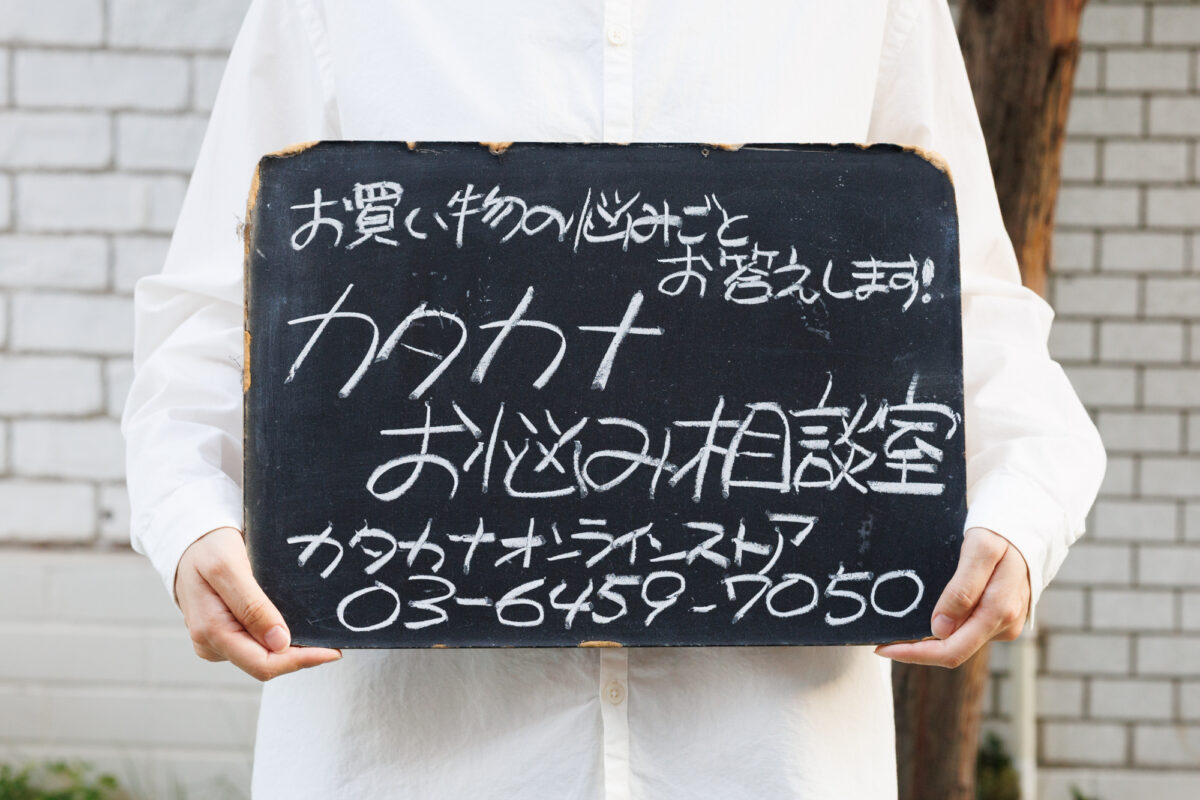 お買い物の悩みごと
お答えします!
カタカナ
お悩み相談室
カタカナオンラインストア
03-6459-7050